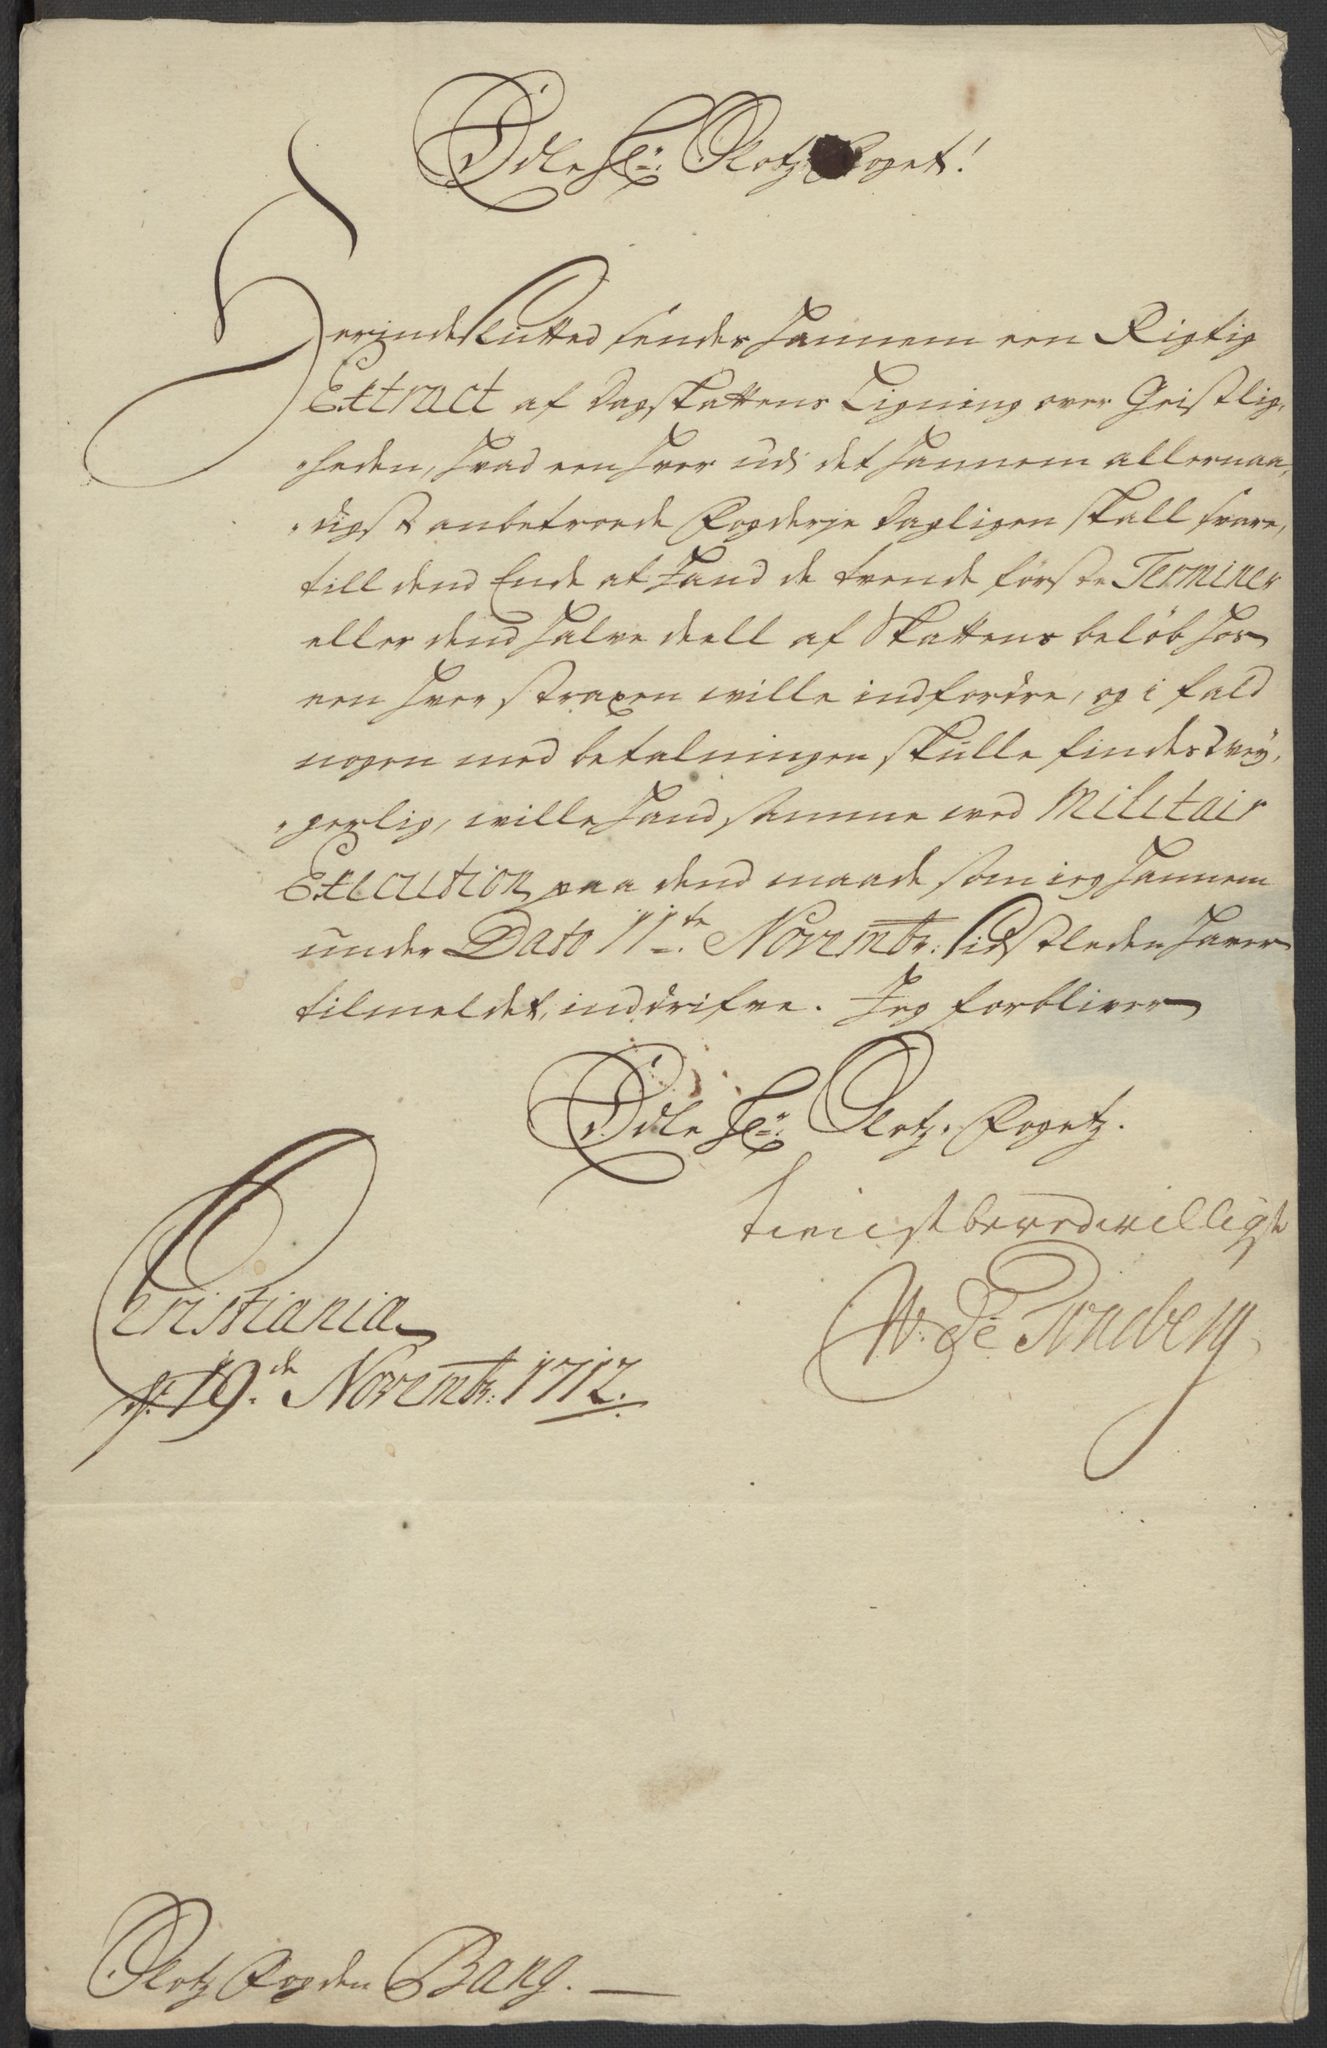 Edle Hr: Slotz Foget!
Herindeslutted sendes hannem een Rigtig
Extract af Dagskattens Ligning over Geistlig-
heden, hvad een hver udi det hannem allernaa-
digst anbetroede Fogderje Dagligen skall svare,
till dend Ende at hand de tvende første Terminer
eller dend halve deell af Skattens beløb hos
een hver straxen wille indfordre, og i fald
nogen med betalningen skulle findes Wey-
gerlig, wille hand samme ved Militair
Execution paa dend maade som ieg hannem
under Dato 11te Novembr: sidstleden haver
tilmeldet, inddrifve. Jeg forbliver
Edle Hr: Slotz-Fogetz.
tienistberedvilligste
W: de Tonsberg
Cristiania
d: 19de Novembr: 1712.
Slotz Fogden Bang.